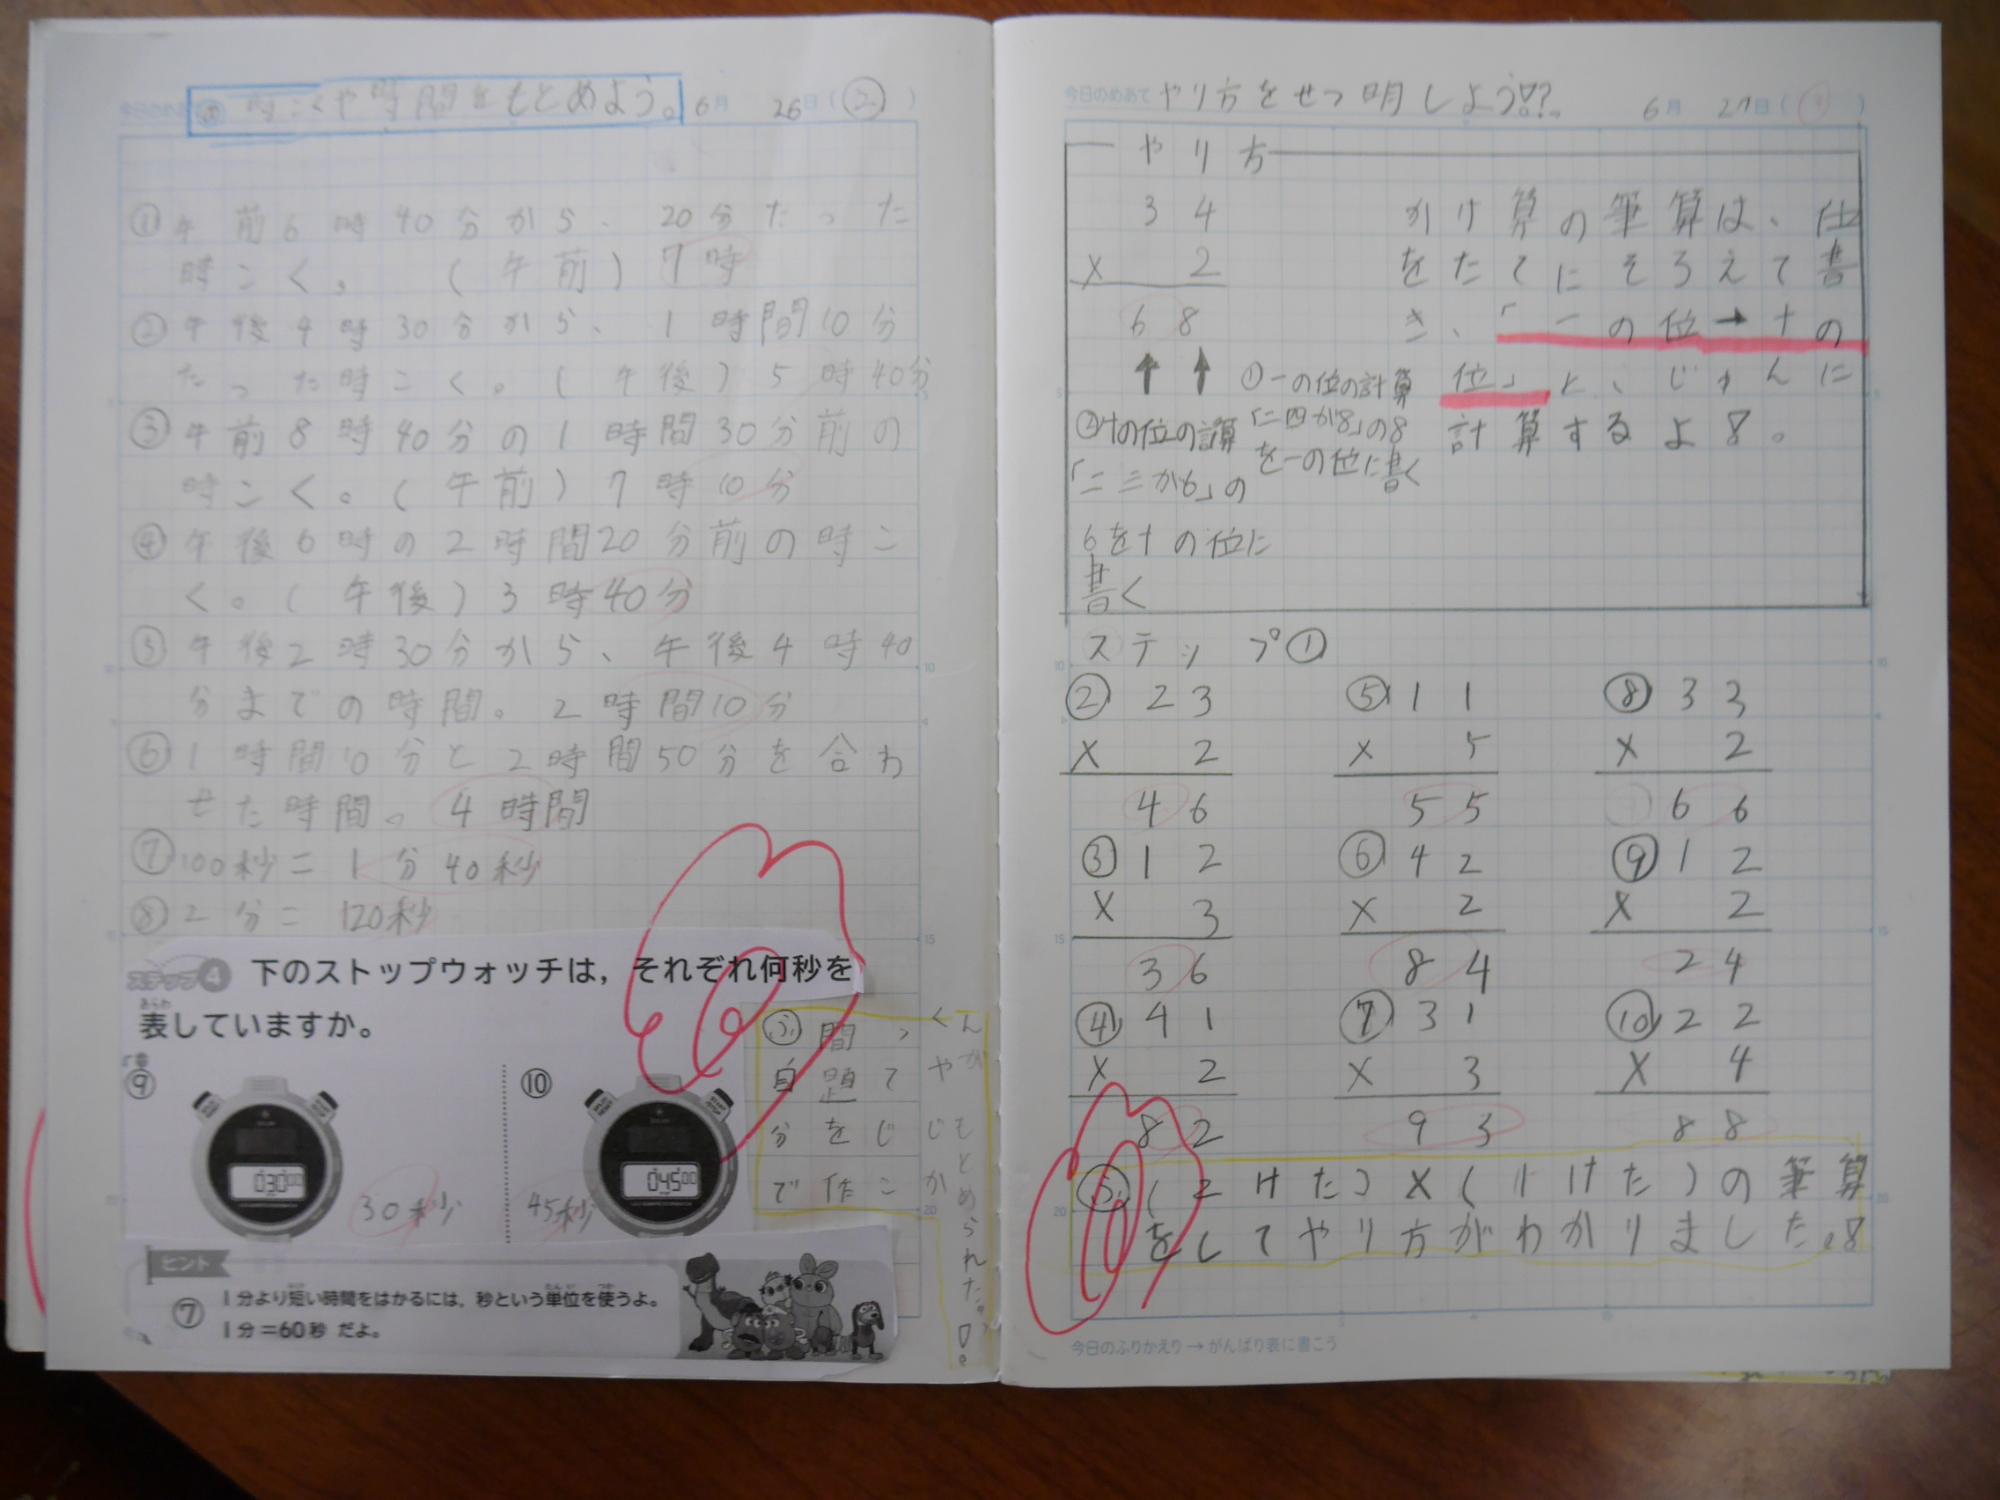 時こくや時間をもとめよう。 6月 26日(②)
①午前6時40分から、20分たった
時こく。 (午前) 7時
②午後4時30分から、1時間10分
たった時こく。(午後) 5時40分
③午前8時40分の1時間30分前の
時こく。(午前) 7時10分
④午後6時の2時間20分前の時こ
く。(午後) 3時40分
⑤午後2時30分から、午後4時40
分までの時間。2時間10分
⑥1時間10分と2時間50分を合わ
せた時間。4時間
⑦100秒=1分40秒
⑧2分=120秒
ステップ4 下のストップウォッチは,それぞれ何秒を
表していますか。
⑨
03000
30秒
⑩
04500
45秒
ヒント
⑦ 1分より短い時間をはかるには,秒という単位を使うよ。
1分=60秒 だよ。
ふ自分で
問題を作
ってじこ
くやじか
んがもとめられた。
今日のめあて やり方をせつ明しよう!?。 6月 27日
やり方
34
× 2
68
①一の位の計算
「二四が8」の8
を一の位に書く
②十の位の計算
「二三が6」の
6を十の位に
書く
かけ算の筆算は、位
をたてにそろえて書
き、「一の位→十の
位」と、じゅんに
計算するよ8。
ステップ①
② 23
× 2
46
③ 12
× 3
36
④ 41
× 2
82
⑤ 11
× 5
55
⑥ 42
× 2
84
⑦ 31
× 3
93
⑧ 33
× 2
66
⑨ 12
× 2
24
⑩ 22
× 4
88
ふ(2けた)×(1けた)の筆算
をしてやり方がわかりました。8
今日のふりかえり→がんばり表に書こう